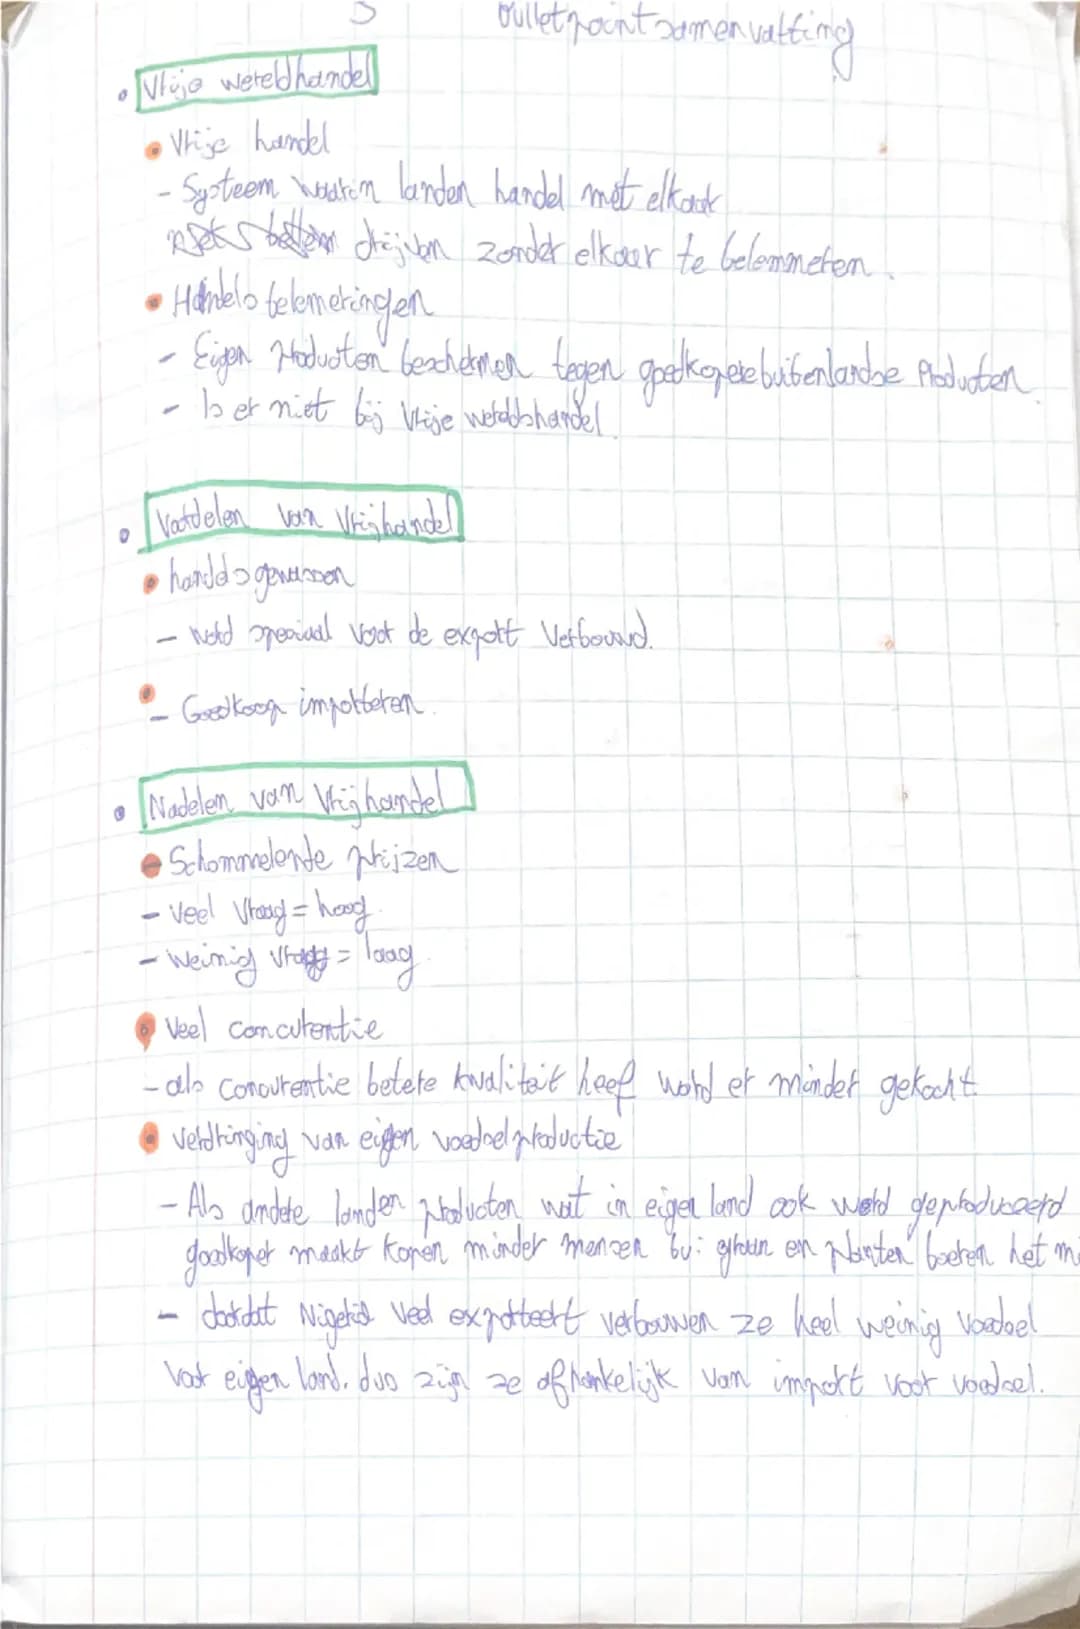 bulletpoint samenvatting
Vrije wereldhandel
Vrije handel
- Systeem waarin landen handel met elkaar
drijven zonder elkaar te belemmeren.
Handelsbelemeringen
- Eigen Producten beschermen tegen goedkopere buitenlandse Producten.
- Is er niet bij Vrije wereldshandel.
Voordelen van Vrijhandel
handelsgewassen
- Word speciaal voor de export Verbouwd.
- Goedkoop importeren.
Nadelen van Vrijhandel
Schommelende prijzen
- Veel Vraag = hoog.
- Weinig vraag = laag.
Veel concurentie
- als concurentie betere kwaliteit heef word er minder gekocht.
Verdringing van eigen voedselproductie
- Als andere landen producten wat in eigen land ook word geproduceerd
goedkoper maakt kopen minder mensen bv: graan en planten boeren het
- doordat Nigeria veel exporteert verbouwen ze heel weinig Voedsel
Voor eigen land. dus zijn ze afhankelijk van import voor voedsel.